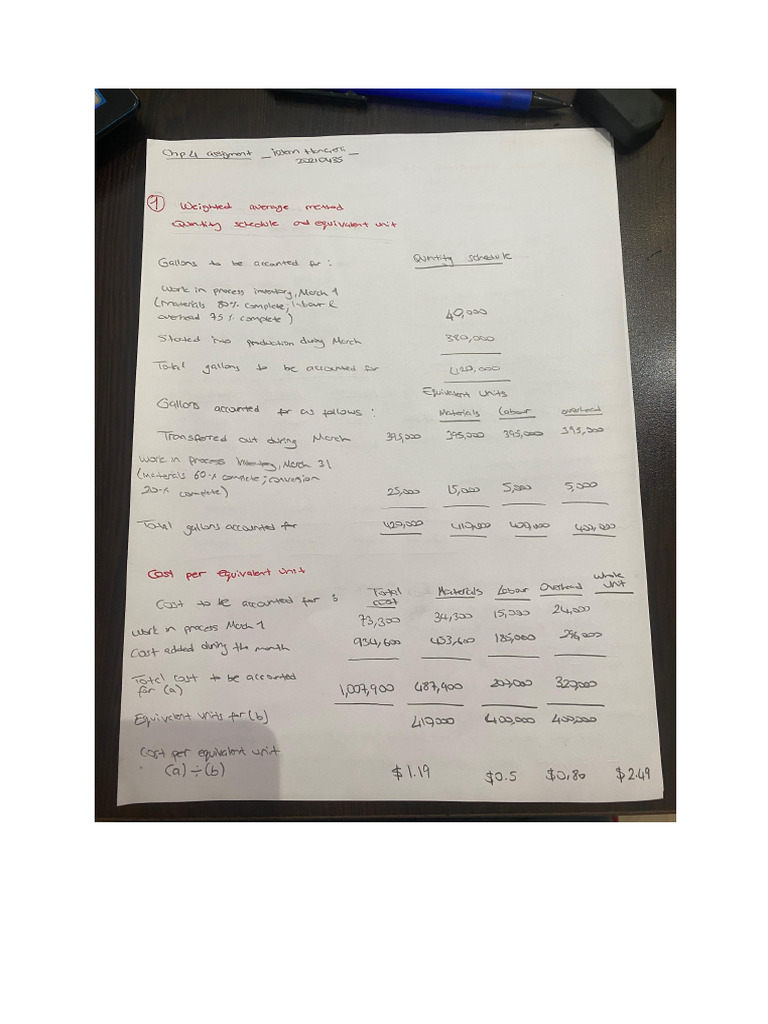 Chp 4 assignment
20210485
1 Weighted average method
Quntity schedule and equivalent unit
Gallons to be accounted for : Quntity schedule
Work in process inventory, March 1
(materials 80% complete; labour &
overhead 75% complete) 40,000
Started into production during March 380,000
Total gallons to be accounted for 420,000
Equivalent Units
Gallons accounted for as follows : Materials Labour overhead
Transferred out during March 395,000 395,000 395,000 395,000
Work in process Inventory, March 31
(materials 60% complete; conversion
20% complete) 25,000 15,000 5,000 5,000
Total gallons accounted for 420,000 410,000 400,000 400,000
Cost per equivalent unit
Cost to be accounted for : Total cost Materials Labour Overhead Whole unit
Work in process March 1 73,300 34,300 15,000 24,000
Cost added during the month 934,600 453,600 185,000 296,000
Total cost to be accounted
for (a) 1,007,900 487,900 200,000 320,000
Equivalent units for (b) 410,000 400,000 400,000
Cost per equivalent unit
(a) ÷ (b) $1.19 $0.5 $0,80 $2.49